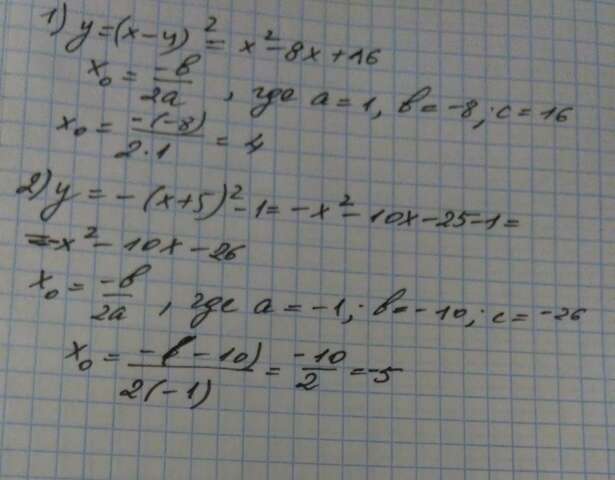 1) y=(x-4)² = x²-8x+16
x₀ = -b/2a, где a=1, b=-8; c=16
x₀ = -(-8)/2·1 = 4
2) y = -(x+5)²-1 = -x²-10x-25-1=
=-x²-10x-26
x₀ = -b/2a, где a=-1; b=-10; c=-26
x₀ = -(-10)/2(-1) = -10/2 = -5